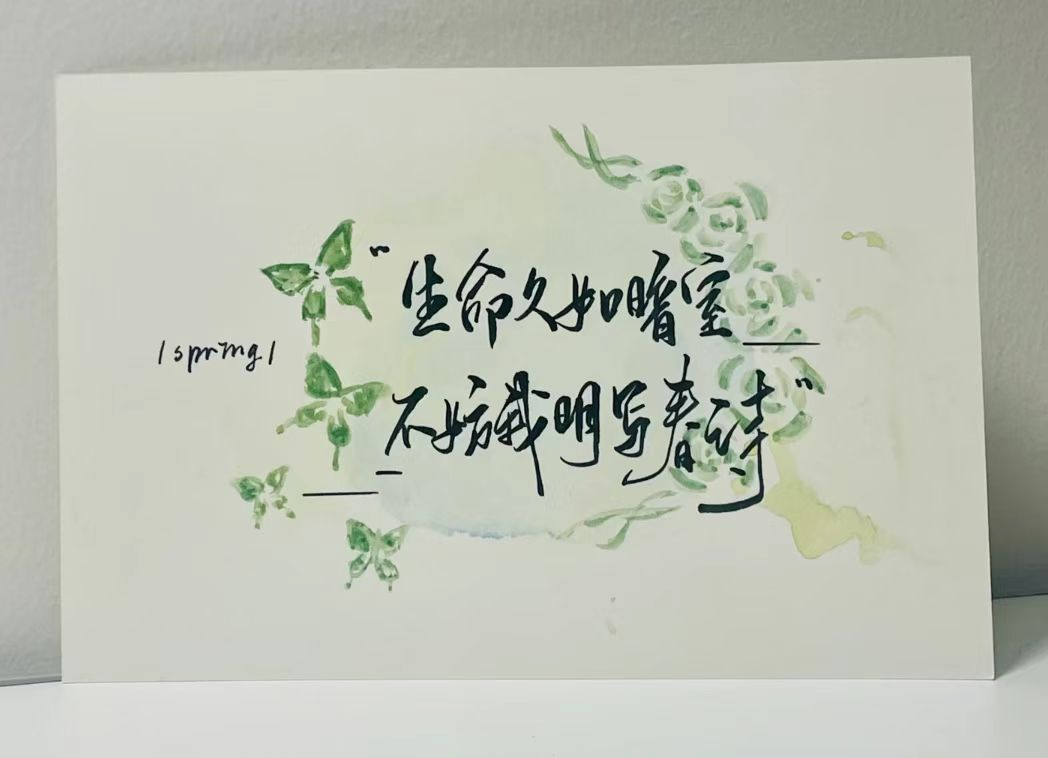 "生命久如暗室
/spring/
不妨我明写春诗"